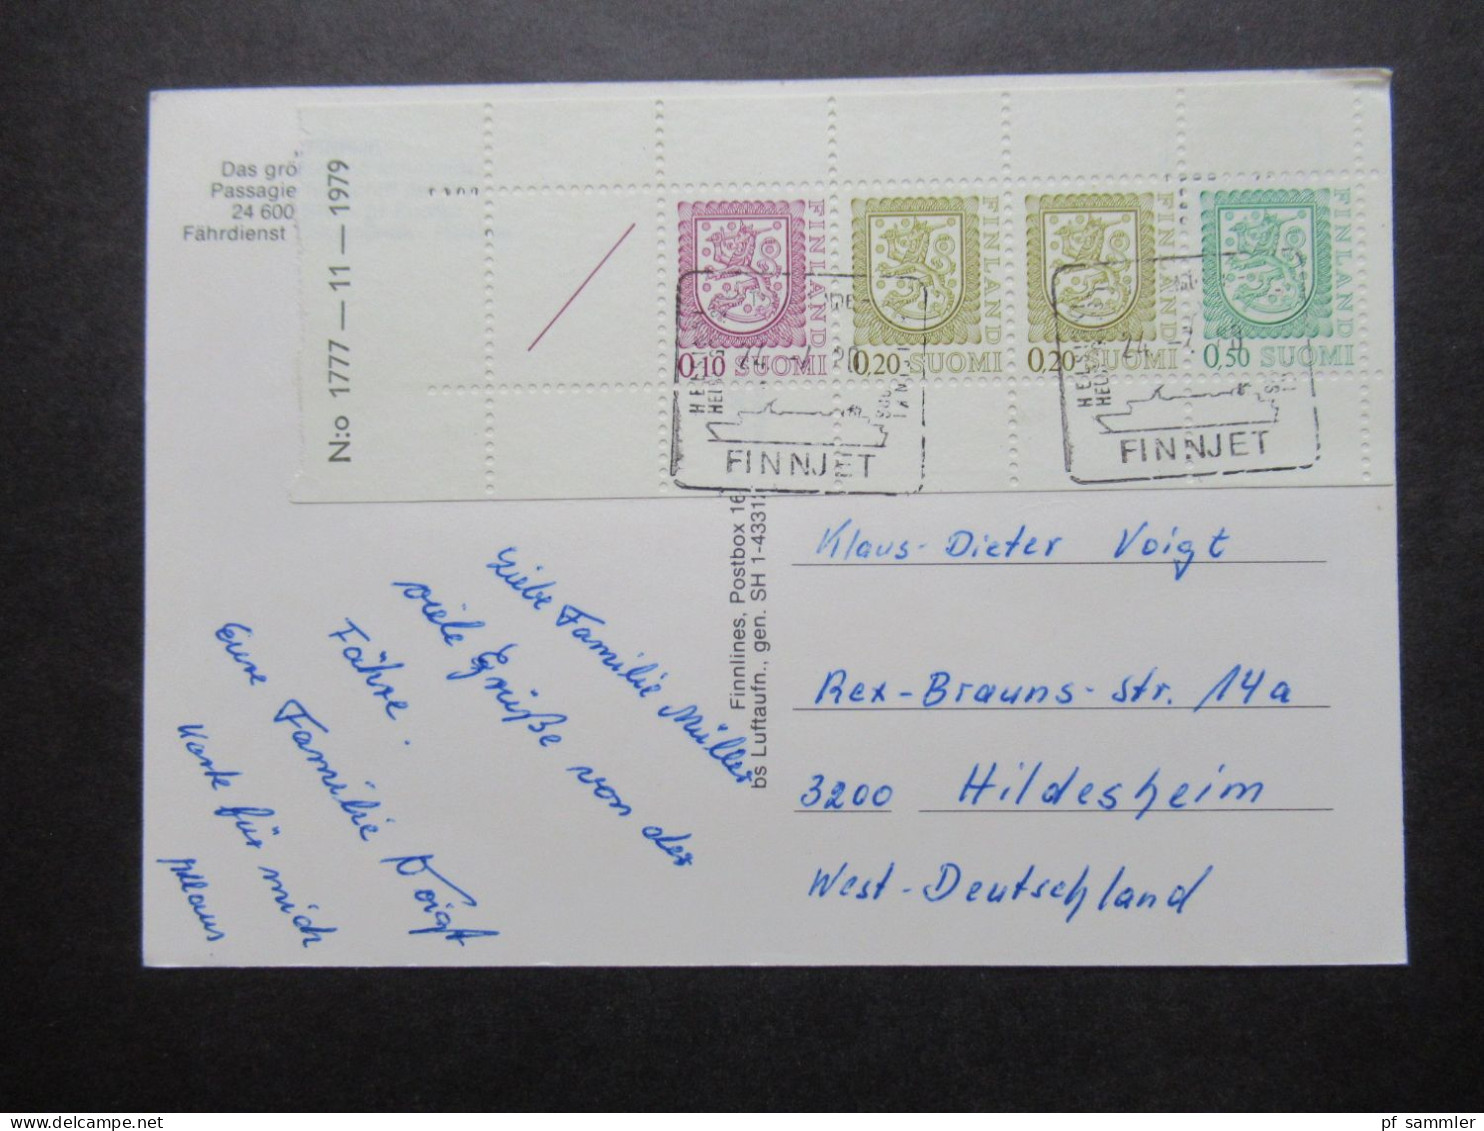 Das grö
Passagie
24 600
Fährdienst
N:o 1777 — 11 — 1979
FINLAND
0,10 SUOMI
FINLAND
0,20 SUOMI
FINLAND
0,20 SUOMI
FINLAND
0,50 SUOMI
FINNJET
FINNJET
Finnlines, Postbox 16
bs Luftaufn., gen. SH 1-4331
Liebe Familie Müller
viele Grüße von der
Fähre.
Eure Familie Voigt
Karte für mich
Klaus
Klaus-Dieter Voigt
Rex-Brauns-Str. 14a
3200 Hildesheim
West-Deutschland
pf sammler
delcampe.net